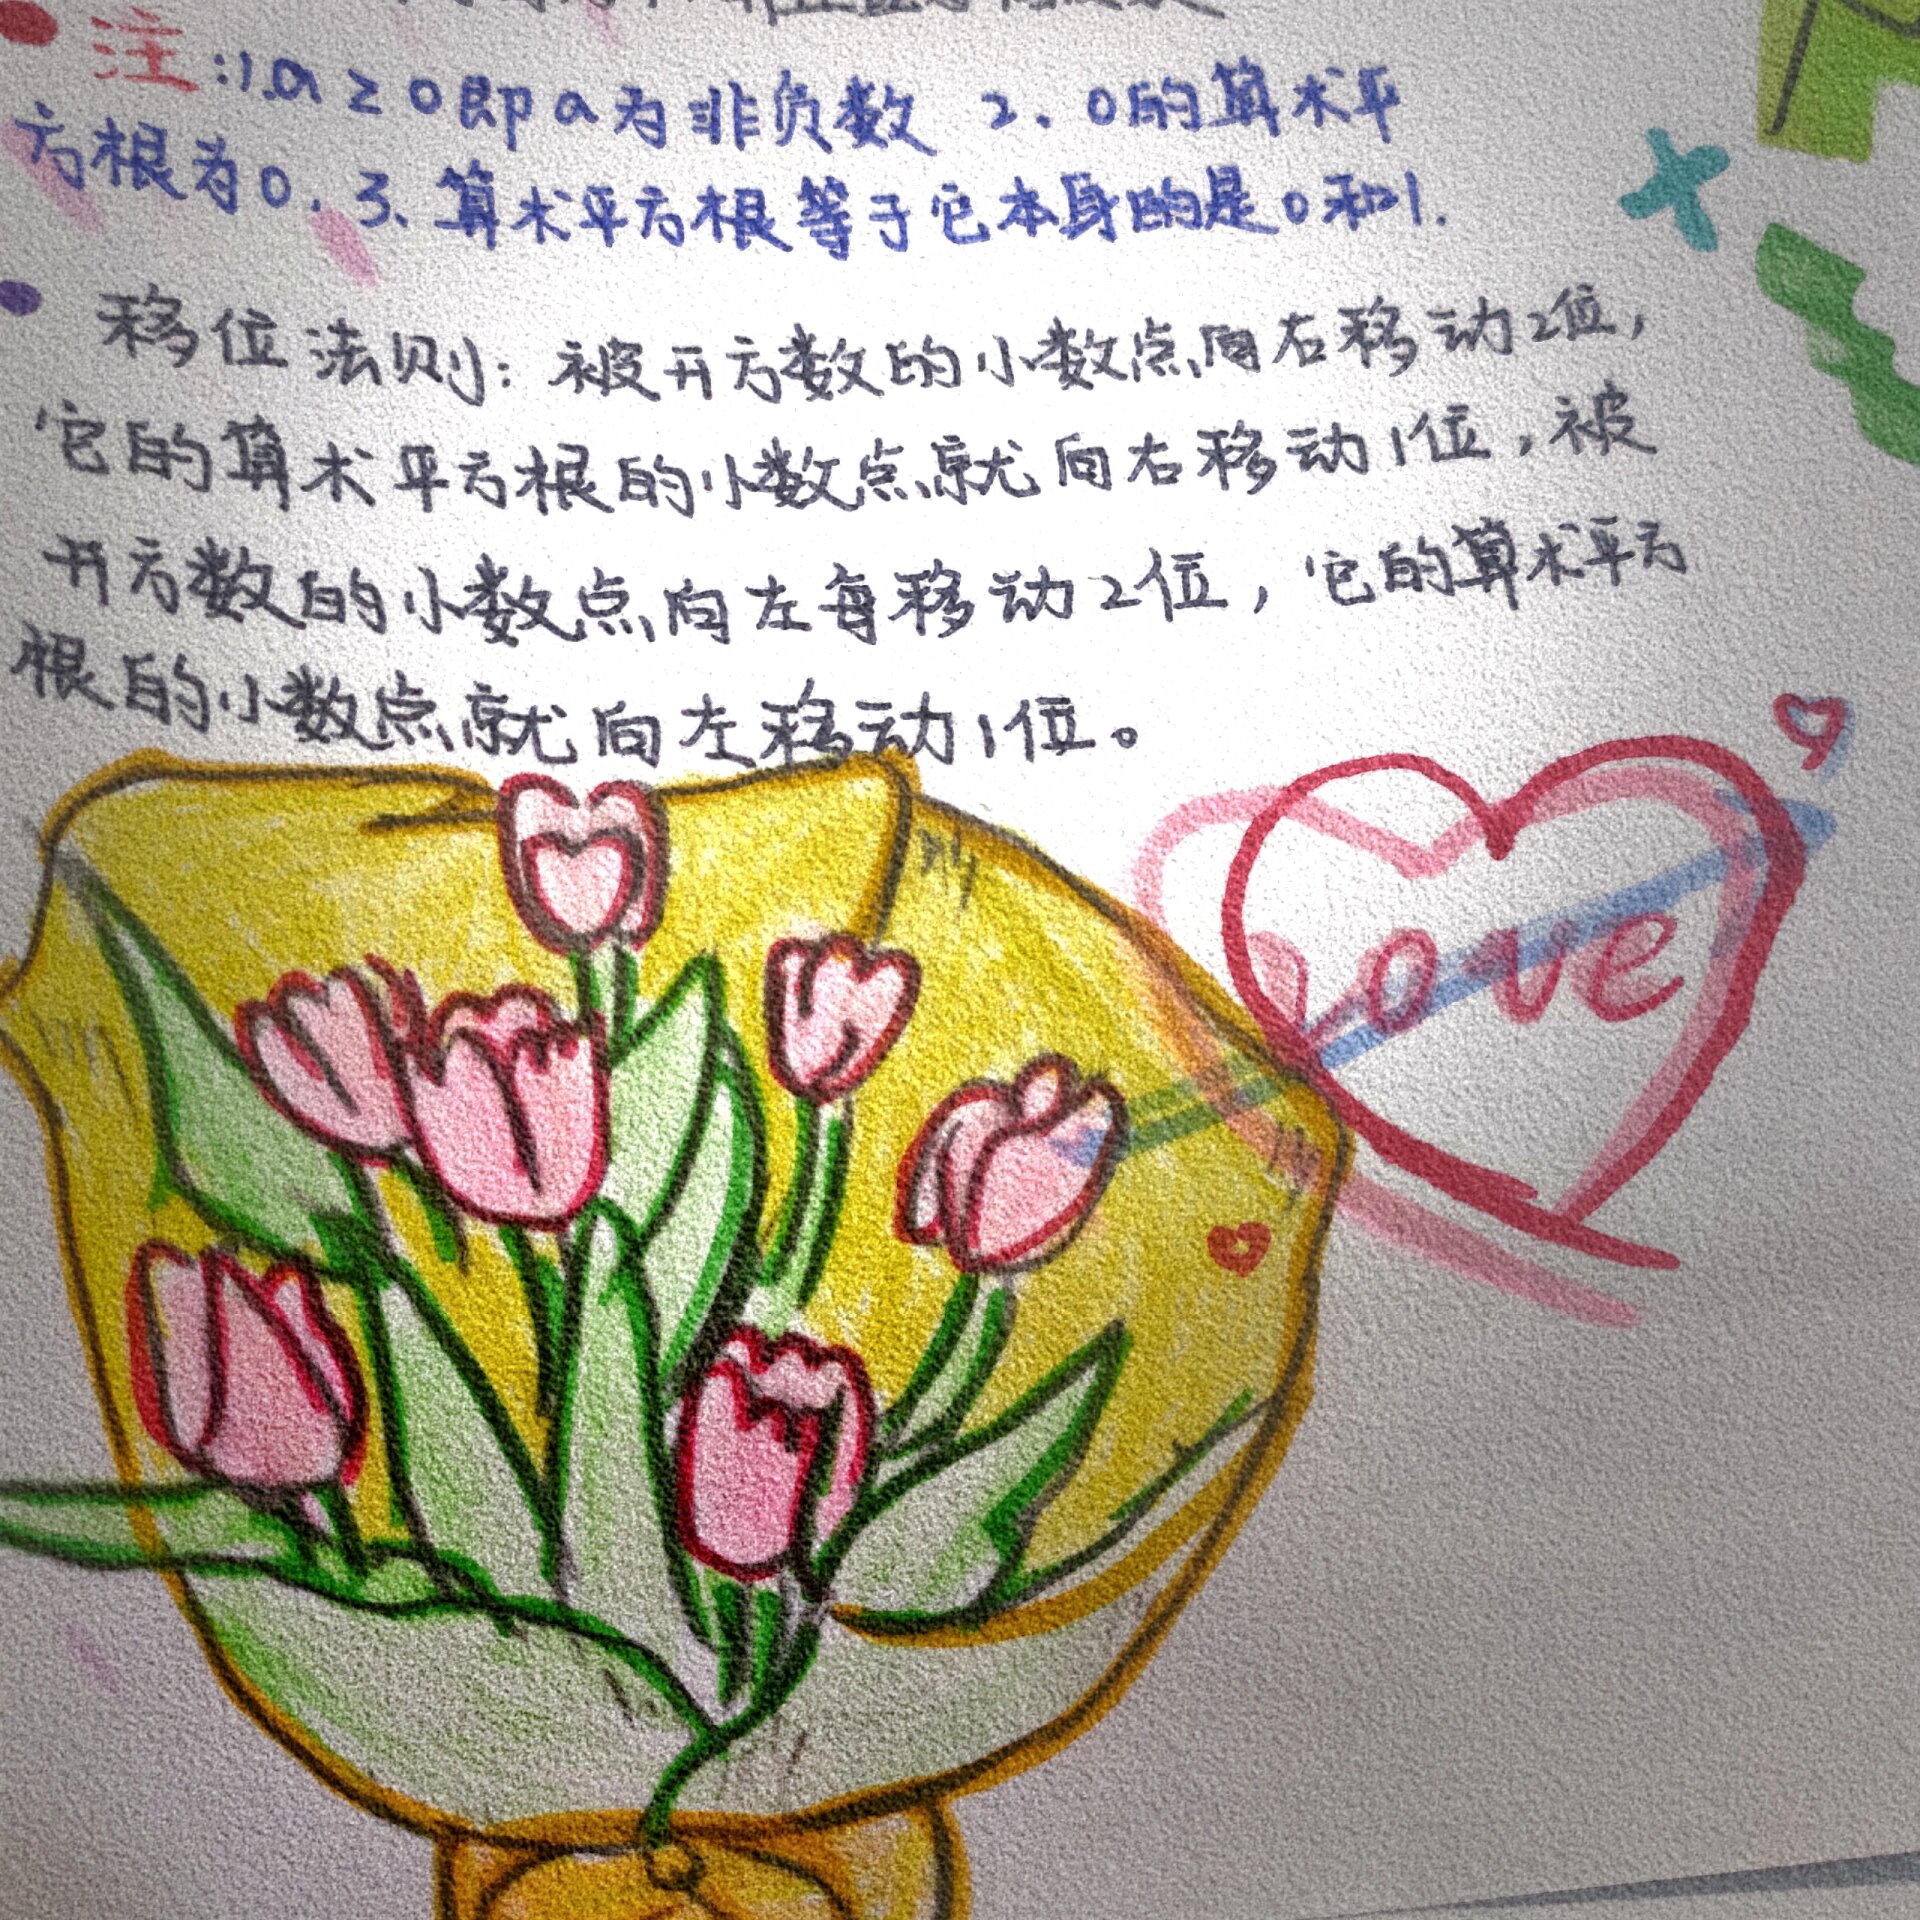 注:1.a≥0即a为非负数 2、0的算术平
方根为0. 3、算术平方根等于它本身的是0和1.
移位法则:被开方数的小数点向右移动2位,
它的算术平方根的小数点就向右移动1位,被
开方数的小数点向左每移动2位,它的算术平方
根的小数点就向左移动1位。
Love